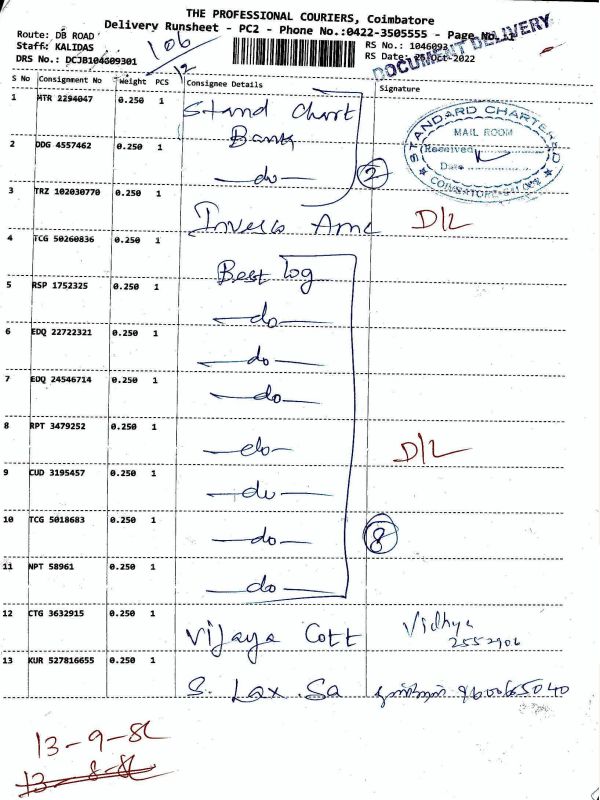 THE PROFESSIONAL COURIERS, Coimbatore
Delivery Runsheet - PC2 - Phone No.:0422-3505555 - Page No.
Route: DB ROAD
Staff: KALIDAS
DRS No.: DCJB104609301
106
12
RS No.: 1046093
RS Date: Oct-2022
DOCUMENT DELIVERY
S No Consignment No Weight PCS Consignee Details Signature
1 MTR 2294047 0.250 1 Stand Chart
Bank
2 DDG 4557462 0.250 1 —do— 2
STANDARD CHARTERED
MAIL ROOM
Received
Date
3 TRZ 102030770 0.250 1 Invesco Amc D/2
4 TCG 50260836 0.250 1 Best log
5 RSP 1752325 0.250 1 —do—
6 EDQ 22722321 0.250 1 —do—
7 EDQ 24546714 0.250 1 —do—
8 RPT 3479252 0.250 1 —do— D/2
9 CUD 3195457 0.250 1 —do—
10 TCG 5018683 0.250 1 —do— 8
11 NPT 58961 0.250 1 —do—
12 CTG 3632915 0.250 1 Vijaya Cott Vidhya
2552906
13 KUR 527816655 0.250 1 S. Lax. Sa 9600665040
13-9-82
13-8-82